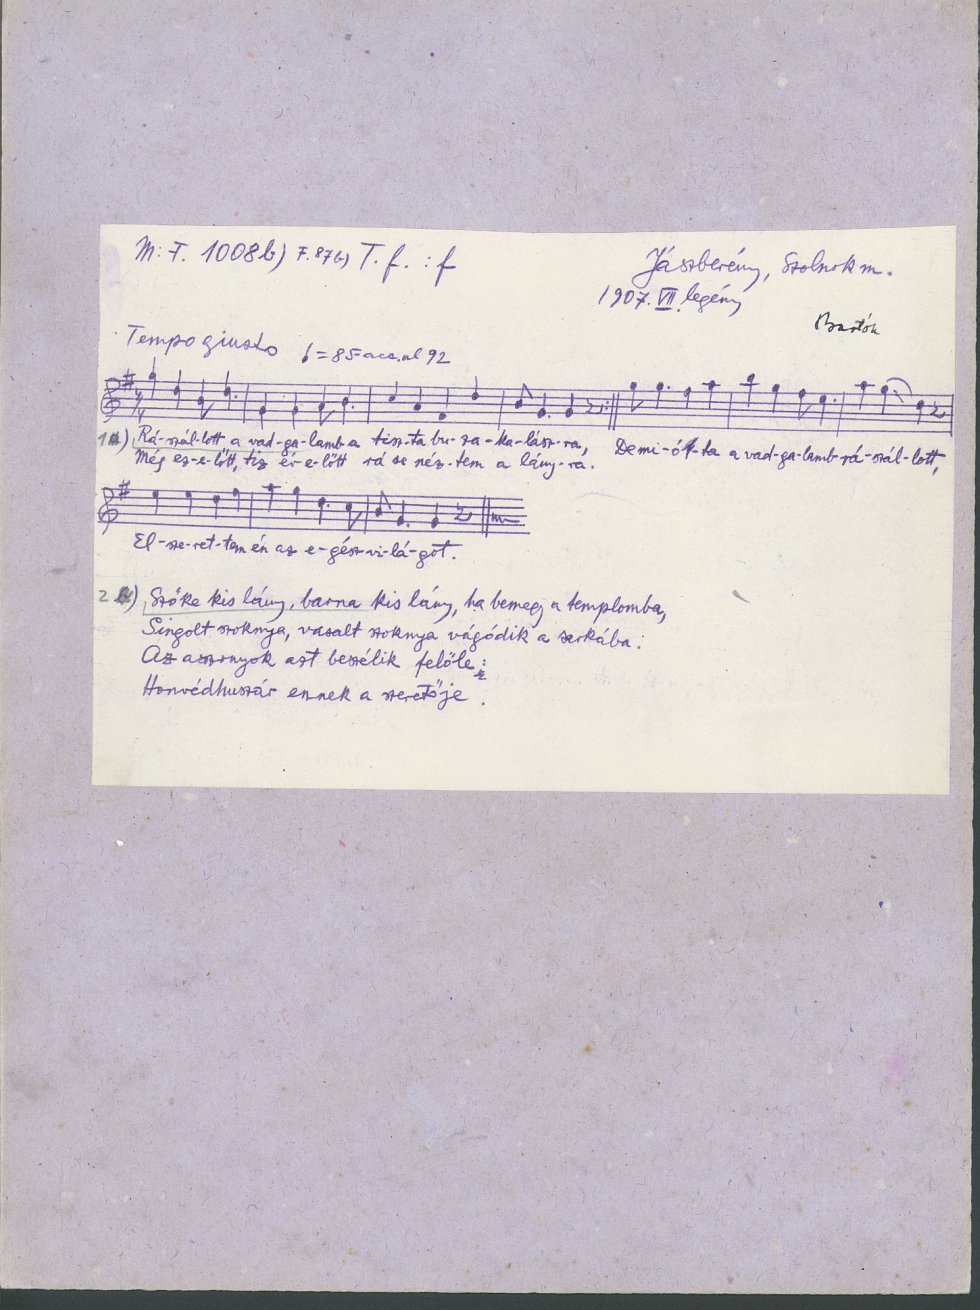 M: F. 1008b) F. 87b) T. f. : f
Jászberény, Szolnok m.
1907. VII. legény
Bartók
Tempo giusto ♩ = 85 acc. al 92
1a) Rá-szál-lott a vad-ga-lamb a tisz-ta bu-za-ka-lász-ra, De mi-ó-ta a vad-ga-lamb rá-szál-lott,
Még ez-e-lőtt, tiz év-e-lőtt rá se néz-tem a lány-ra.
El-sze-ret-tem én az e-gész vi-lá-got.
2 b) Szőke kis lány, barna kis lány, ha bemegy a templomba,
Singolt szoknya, vasalt szoknya vágódik a sarkába:
Az asszonyok azt beszélik felőle:
Honvédhuszár ennek a szeretője.